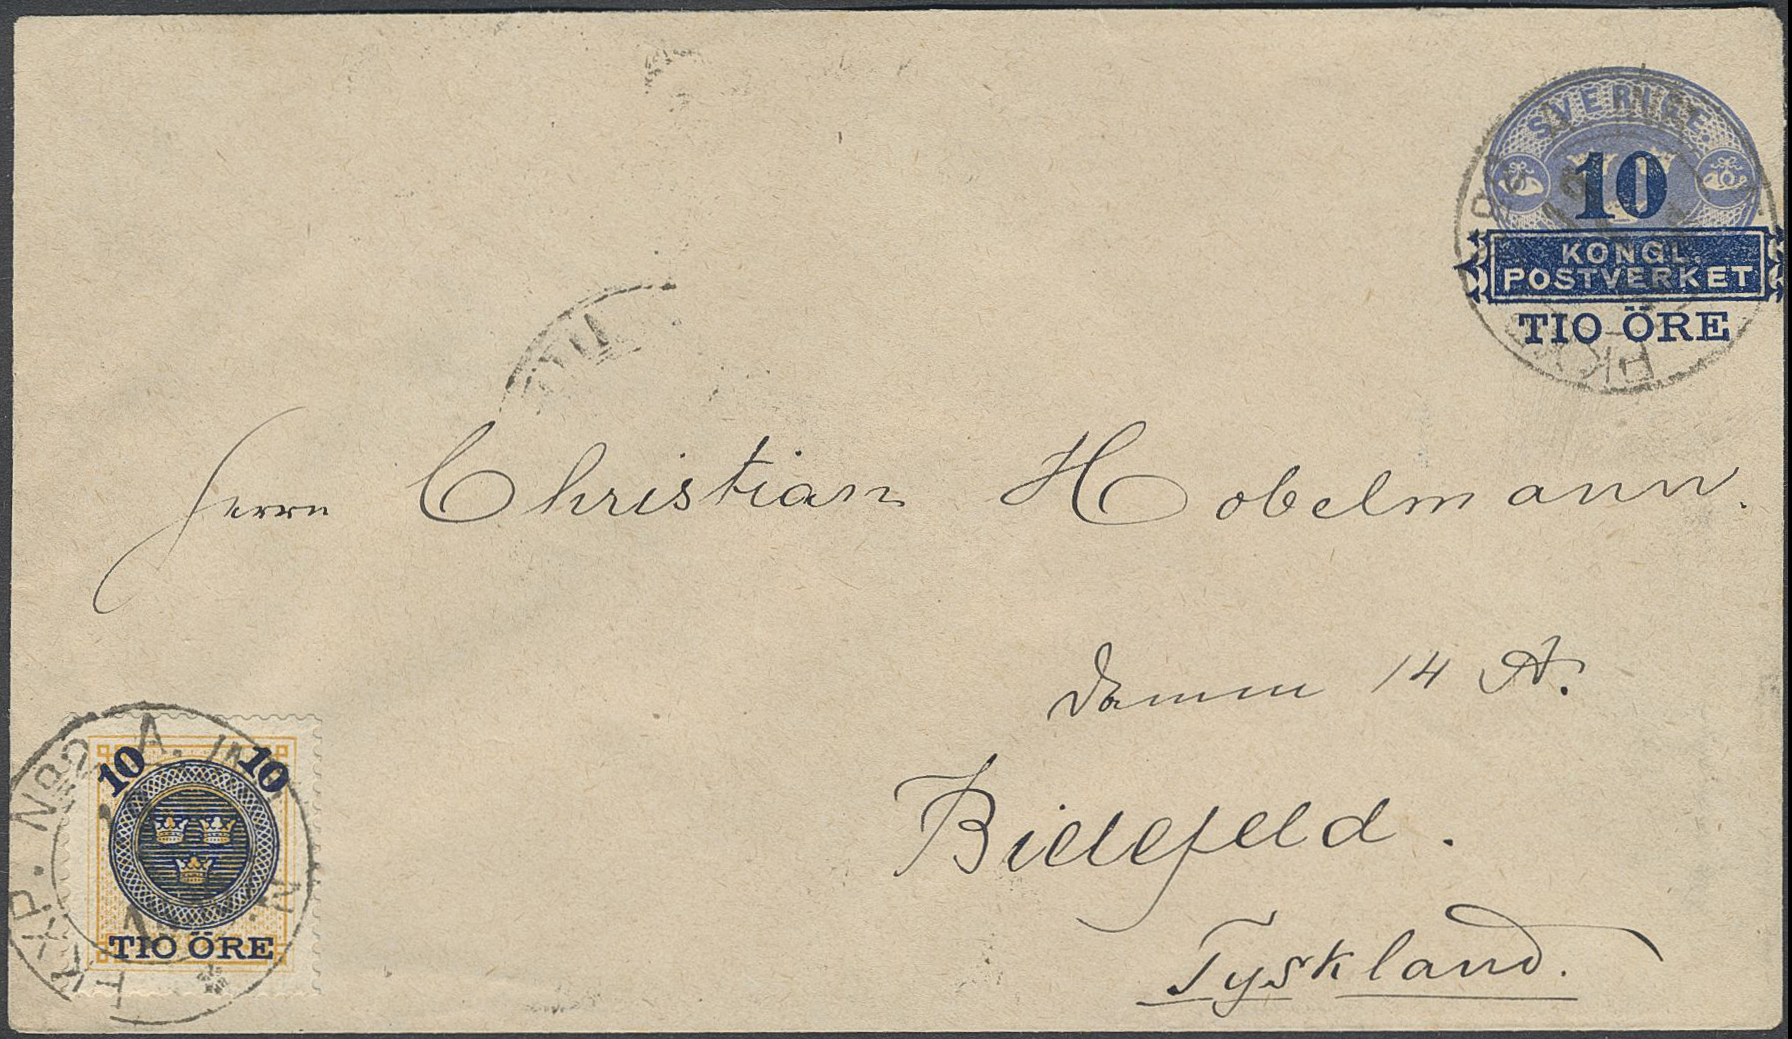 SVERIGE.
10
KONGL.
POSTVERKET
TIO ÖRE
Herrn Christian Hobelmann.
Damm 14 A.
Bielefeld.
Tyskland.
10 10
TIO ÖRE
PKXP. No 2 A.